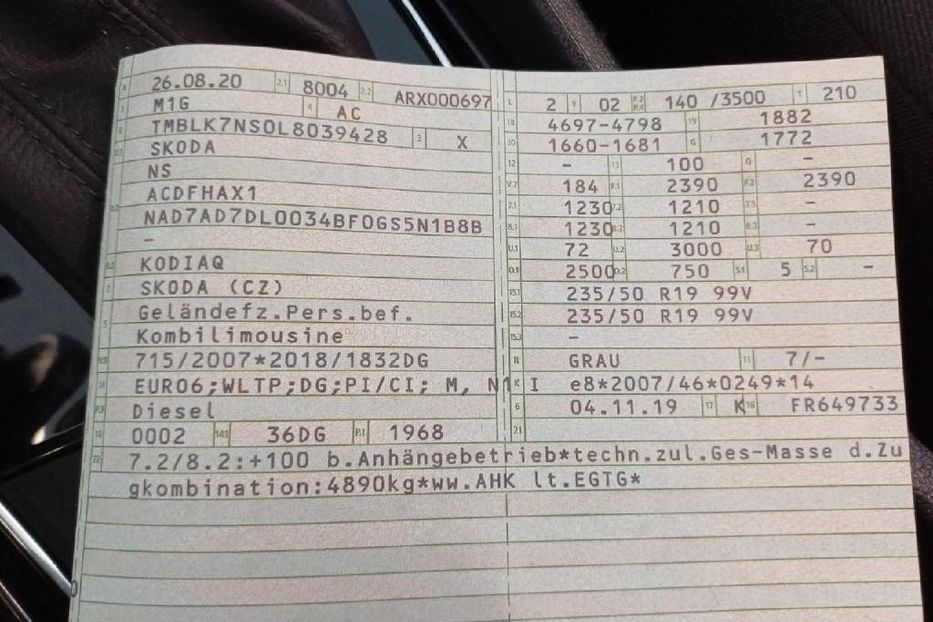 B 26.08.20 2.1 8004 2.2 ARX000697
J M1G 4 AC
E TMBLK7NS0L8039428 3 X
SKODA
NS
ACDFHAX1
NAD7AD7DL0034BF0GS5N1B8B
–
KODIAQ
SKODA (CZ)
5 Geländefz.Pers.bef.
Kombilimousine
715/2007*2018/1832DG
14 EURO6;WLTP;DG;PI/CI; M, N1 I
P.3 Diesel
10 0002 14.1 36DG P.1 1968
22 7.2/8.2:+100 b.Anhängebetrieb*techn.zul.Ges-Masse d.Zu
gkombination:4890kg*ww.AHK lt.EGTG*
L 2 9 02 P.2 P.4 140 /3500 T 210
18 4697-4798 19 1882
20 1660-1681 G 1772
12 – 13 100 Q –
V.7 184 F.1 2390 F.2 2390
7.1 1230 7.2 1210 7.3 –
8.1 1230 8.2 1210 8.3 –
U.1 72 U.2 3000 U.3 70
O.1 2500 O.2 750 S.1 5 S.2 –
15.1 235/50 R19 99V
15.2 235/50 R19 99V
15.3 –
R GRAU 11 7/-
K e8*2007/46*0249*14
6 04.11.19 17 K 16 FR649733
21